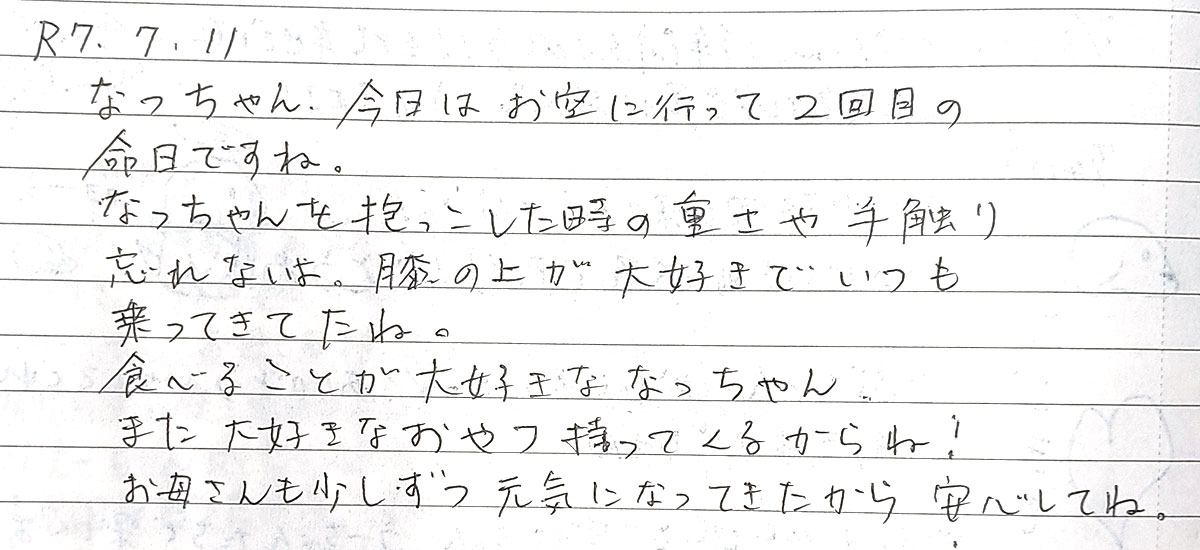 R7.7.11
なっちゃん.今日はお空に行って2回目の
命日ですね。
なっちゃんを抱っこした時の重さや手触り
忘れないよ。膝の上が大好きでいつも
乗ってきてたね。
食べることが大好きななっちゃん
また大好きなおやつ持ってくるからね!
お母さんも少しずつ元気になってきたから安心してね。